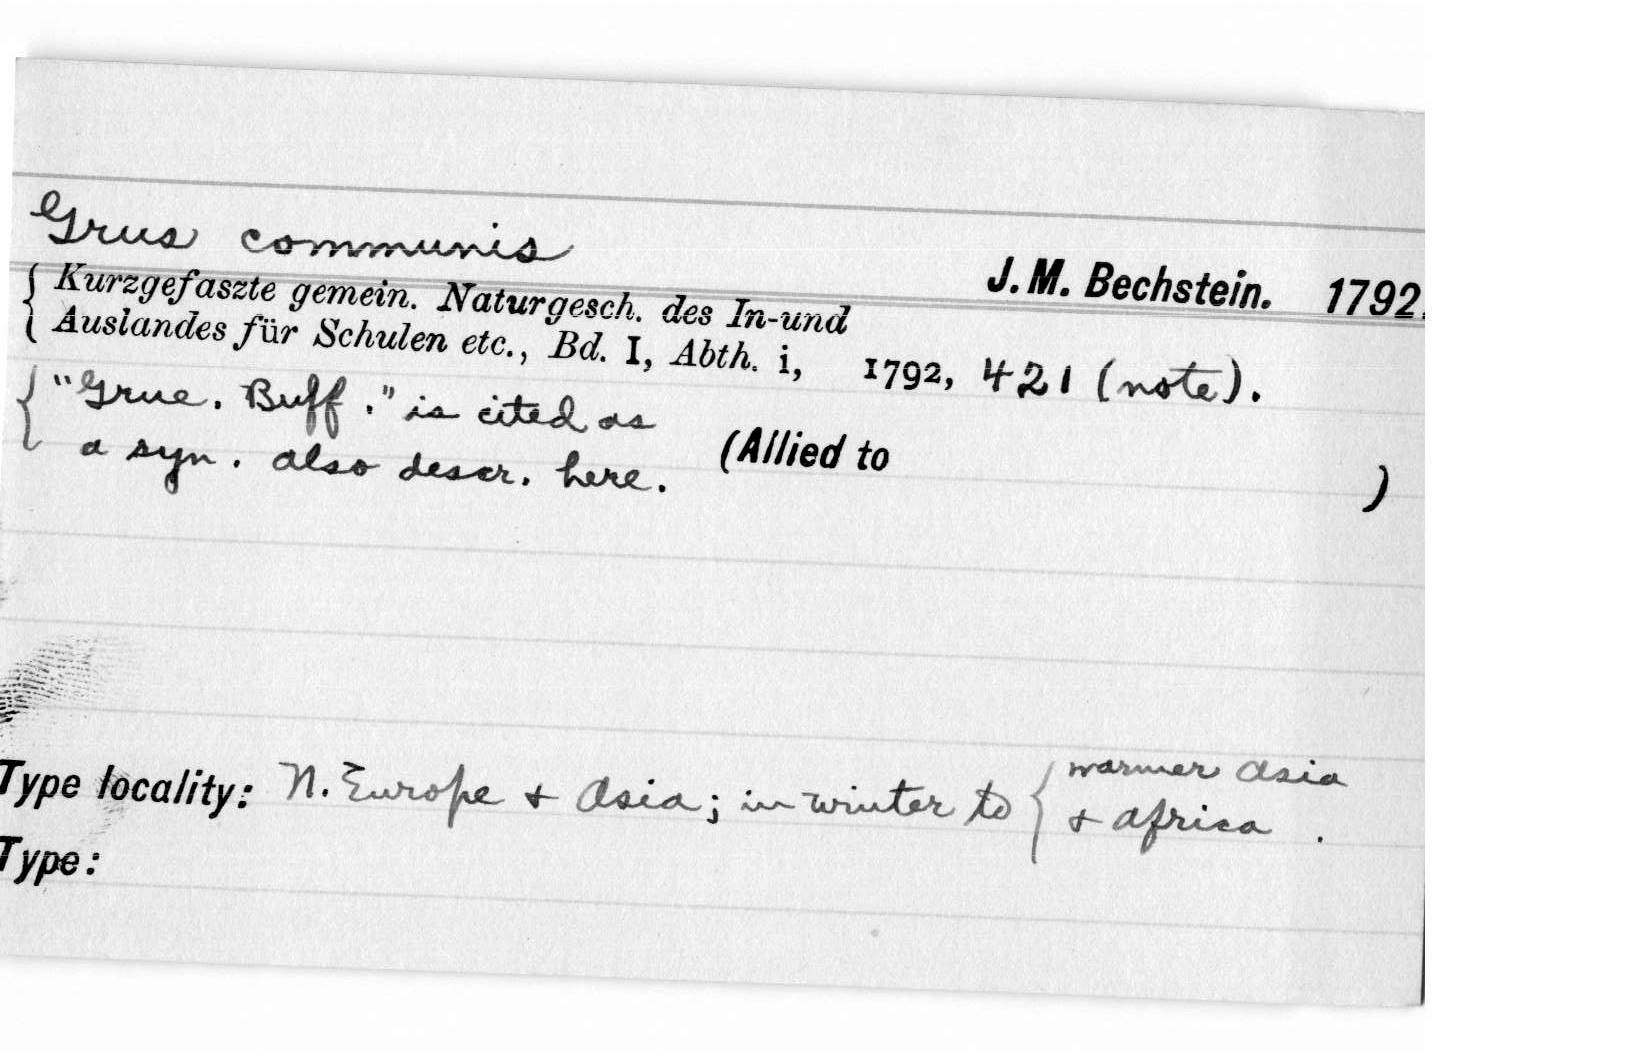 Grus communis
J. M. Bechstein. 1792.
{ Kurzgefaszte gemein. Naturgesch. des In-und
Auslandes für Schulen etc., Bd. I, Abth. i, 1792, 421 (note).
{ "Grue. Buff." is cited as
a syn. also descr. here. (Allied to )
Type locality: N. Europe & Asia; in winter to { warmer Asia
& Africa.
Type: